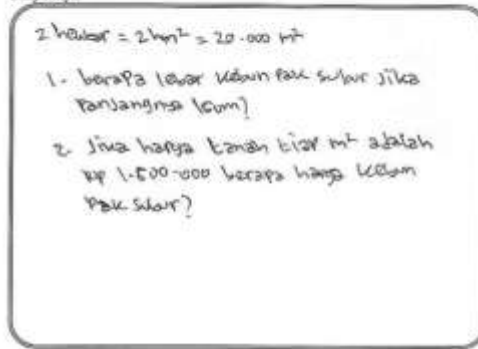 2 hektar = 2 hm² = 20.000 m²
1. berapa lebar kebun Pak subur jika
Panjangnya 160m?
2. Jika harga tanah tiap m² adalah
Rp 1.500.000 berapa harga kebun
Pak subur?